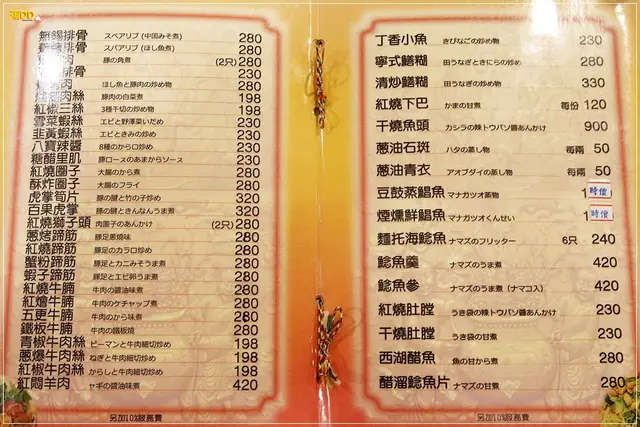 無錫排骨 スペアリブ (中国みそ煮) 280
排骨 スパアリブ (ほし魚煮) 280
肉 豚の角煮 (2只) 280
230
肉 ほし魚と豚肉の炒め物 230
肉絲 豚肉の白菜煮 198
紅椒三絲 3種千切の炒め物 198
雪菜蝦絲 エビと野澤菜いため 230
韭黃蝦絲 エビときみの炒め 230
八寶辣醬 8種のから口炒め 230
糖醋里肌 豚ロースのあまからソース 230
紅燒圈子 大腸のから煮 280
酥炸圈子 大腸のフライ 280
虎掌筍片 豚の腱と竹の子炒め 320
百果虎掌 豚の腱ときんなんうま煮 320
紅燒獅子頭 肉團子のあんかけ (2只) 280
蔥烤蹄筋 豚足蔥燒味 280
紅燒蹄筋 豚足のカラロ炒め 280
蟹粉蹄筋 豚足とカニみそうま煮 280
蝦子蹄筋 豚足とエビ卵うま煮 280
紅燒牛腩 牛肉の醬油味煮 280
紅燴牛腩 牛肉のケチャップ煮 280
五更牛腩 牛肉のから味煮 280
鐵板牛腩 牛肉の鐵板燒 280
青椒牛肉絲 ピーマンと牛肉細切炒め 198
蔥爆牛肉絲 ねぎと牛肉細切炒め 198
紅椒牛肉絲 からしと牛肉細切炒め 198
紅燜羊肉 ヤギの醬油味煮 420
另加10%服務費
丁香小魚 きびなごの炒め物 230
寧式鱔糊 田うなぎときにらの炒め 280
清炒鱔糊 田うなぎの炒め物 330
紅燒下巴 かまの甘煮 每份 120
干燒魚頭 カシラの辣トウバソ醬あんかけ 900
蔥油石斑 ハタの蒸し物 每兩 50
蔥油青衣 アオブダイの蒸し物 每兩 50
豆鼓蒸鯧魚 マナガツオ蒸物 時價
煙燻鮮鯧魚 マナガツオくんせい 時價
麵托海鯰魚 ナマズのフリッター 6只 240
鯰魚羹 ナマズのうま煮 420
鯰魚參 ナマズのうま煮 (ナマコ入) 420
紅燒肚膛 うき袋の辣トウバソ醬あんかけ 230
干燒肚膛 うき袋の甘煮 230
西湖醋魚 魚の甘から煮 280
醋溜鯰魚片 ナマズの甘煮 280
另加10%服務費